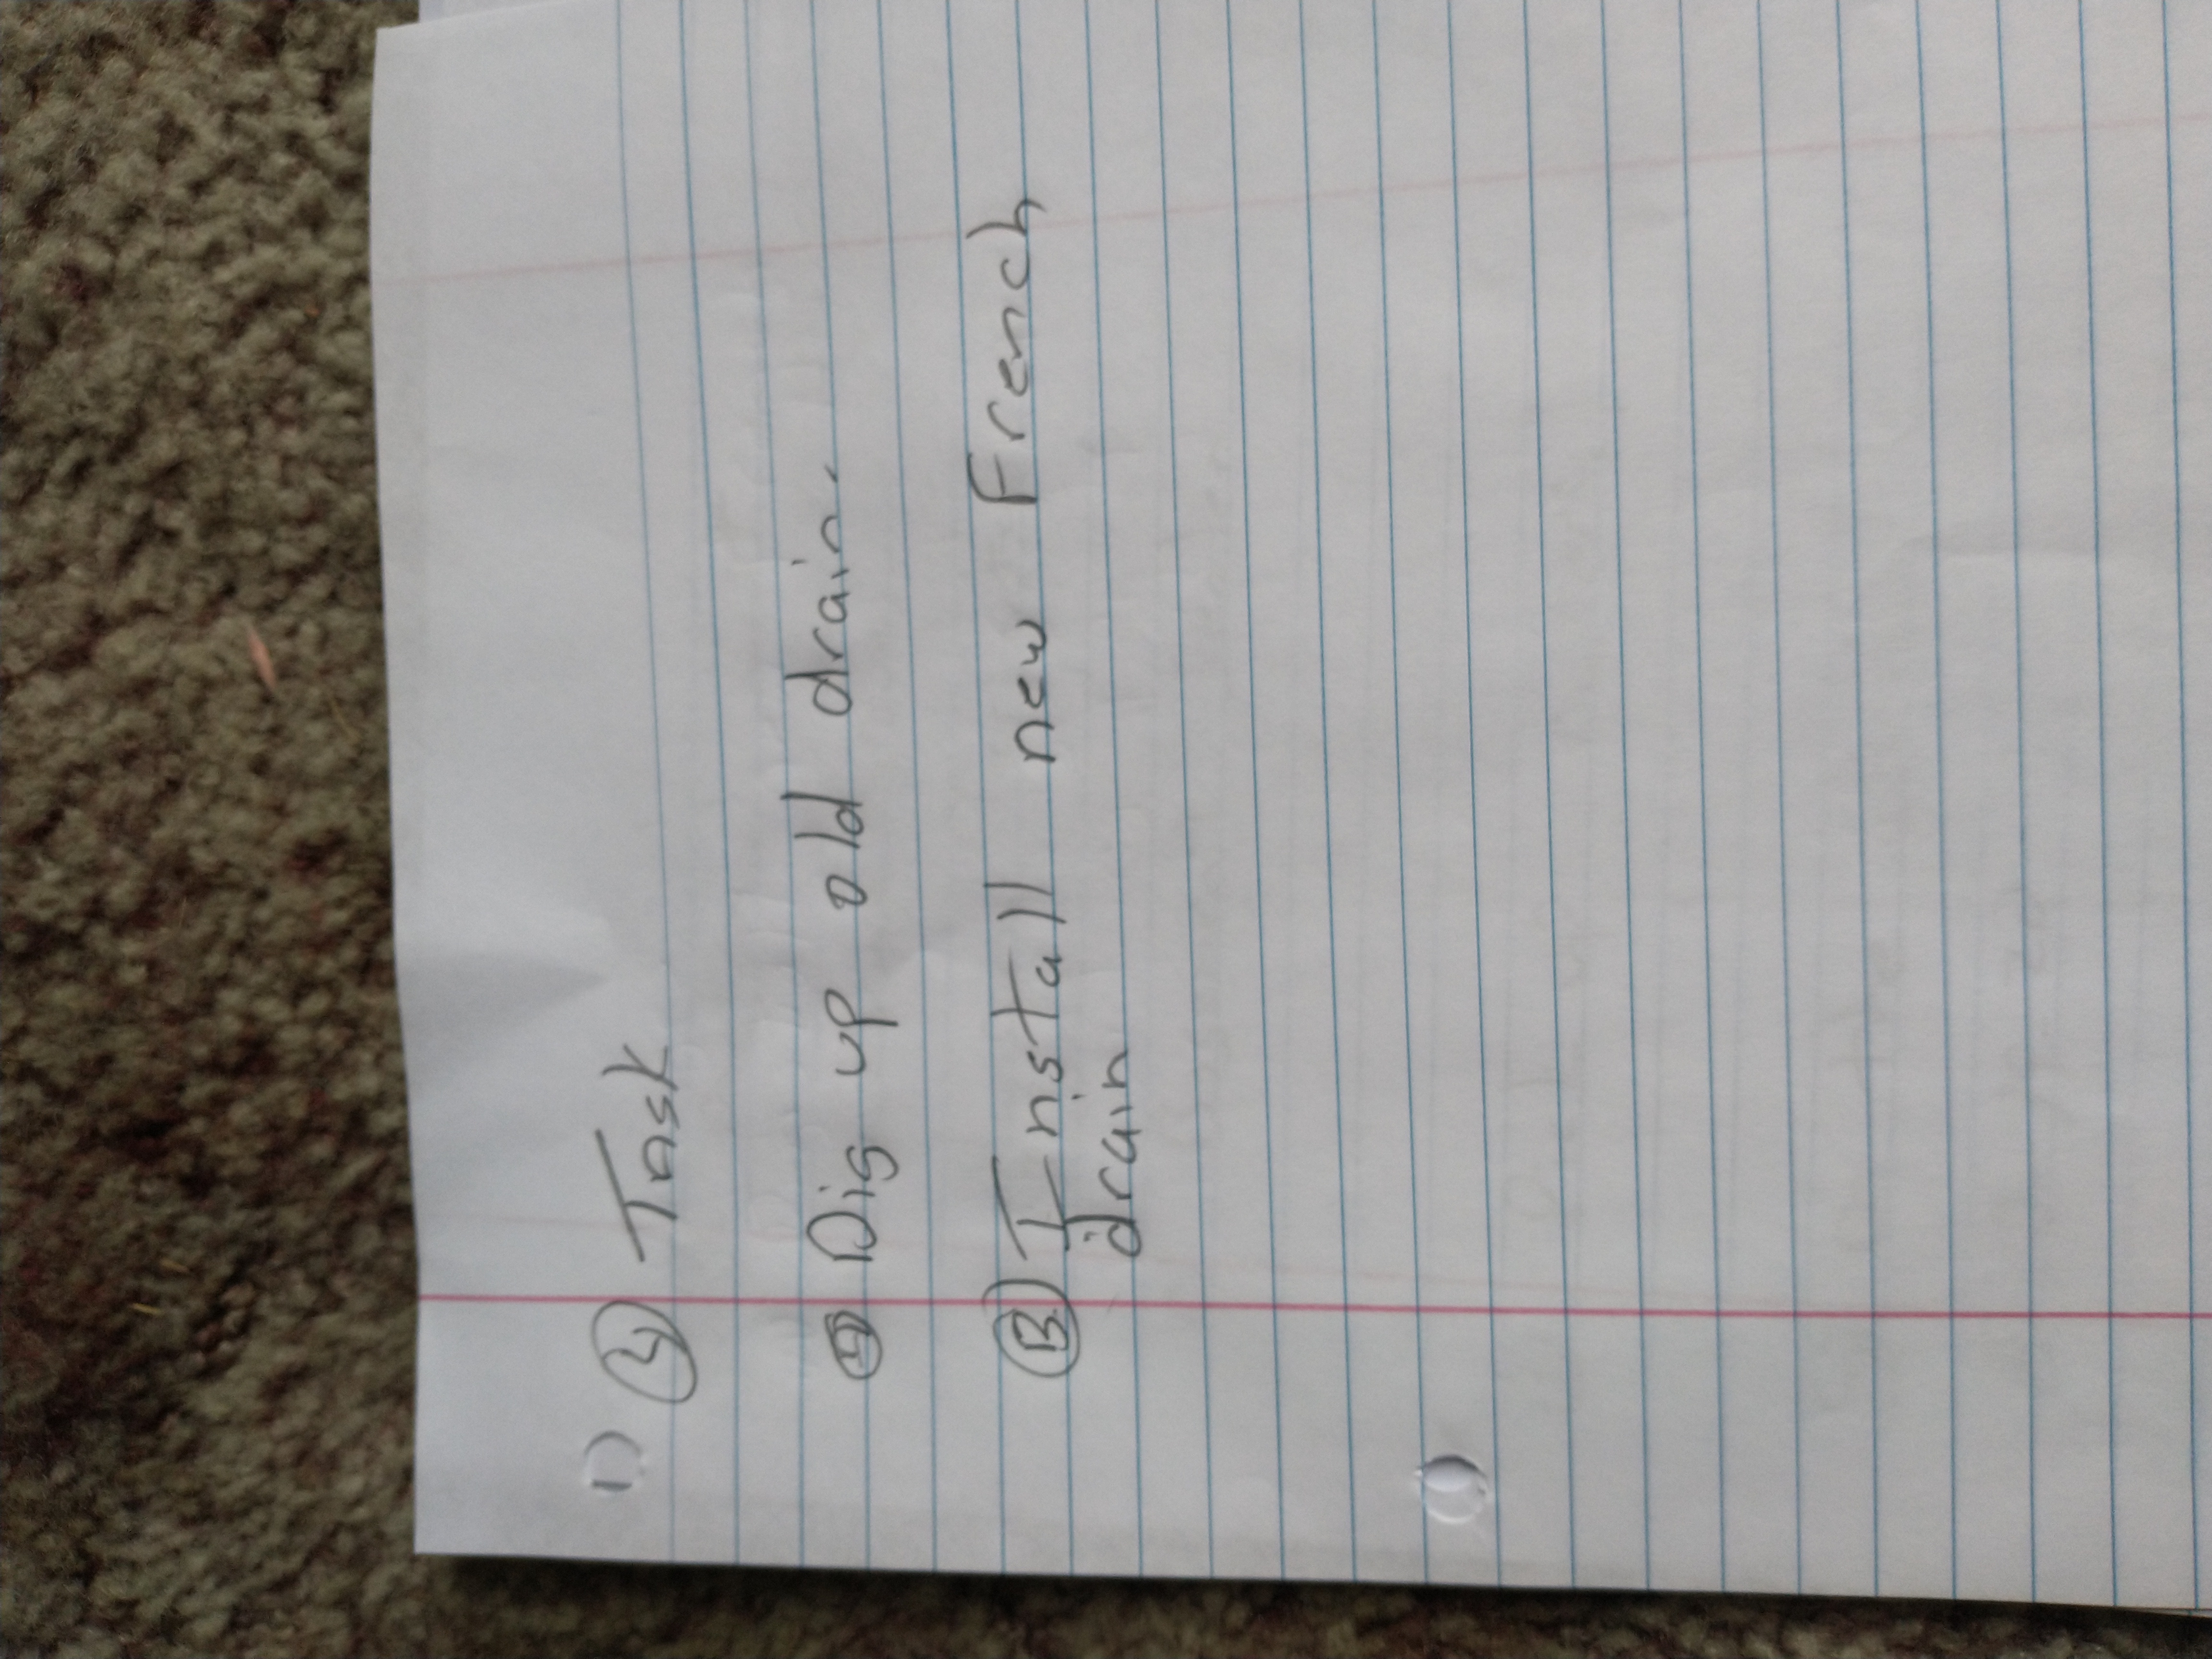 1) Task
Dig up old drain.
B Install new French
drain